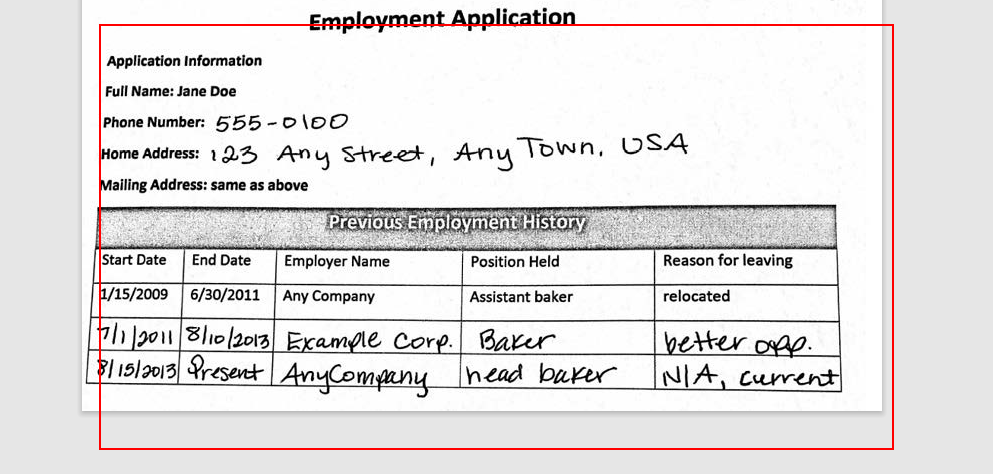 Employment Application
Application Information
Full Name: Jane Doe
Phone Number: 555-0100
Home Address: 123 Any Street, Any Town, USA
Mailing Address: same as above
Previous Employment History
Start Date End Date Employer Name Position Held Reason for leaving
1/15/2009 6/30/2011 Any Company Assistant baker relocated
7/1/2011 8/10/2013 Example Corp. Baker better opp.
8/15/2013 Present AnyCompany head baker N/A, current